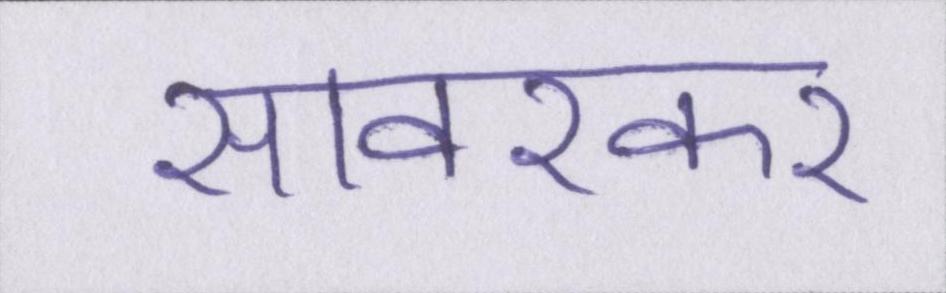 सावरकर